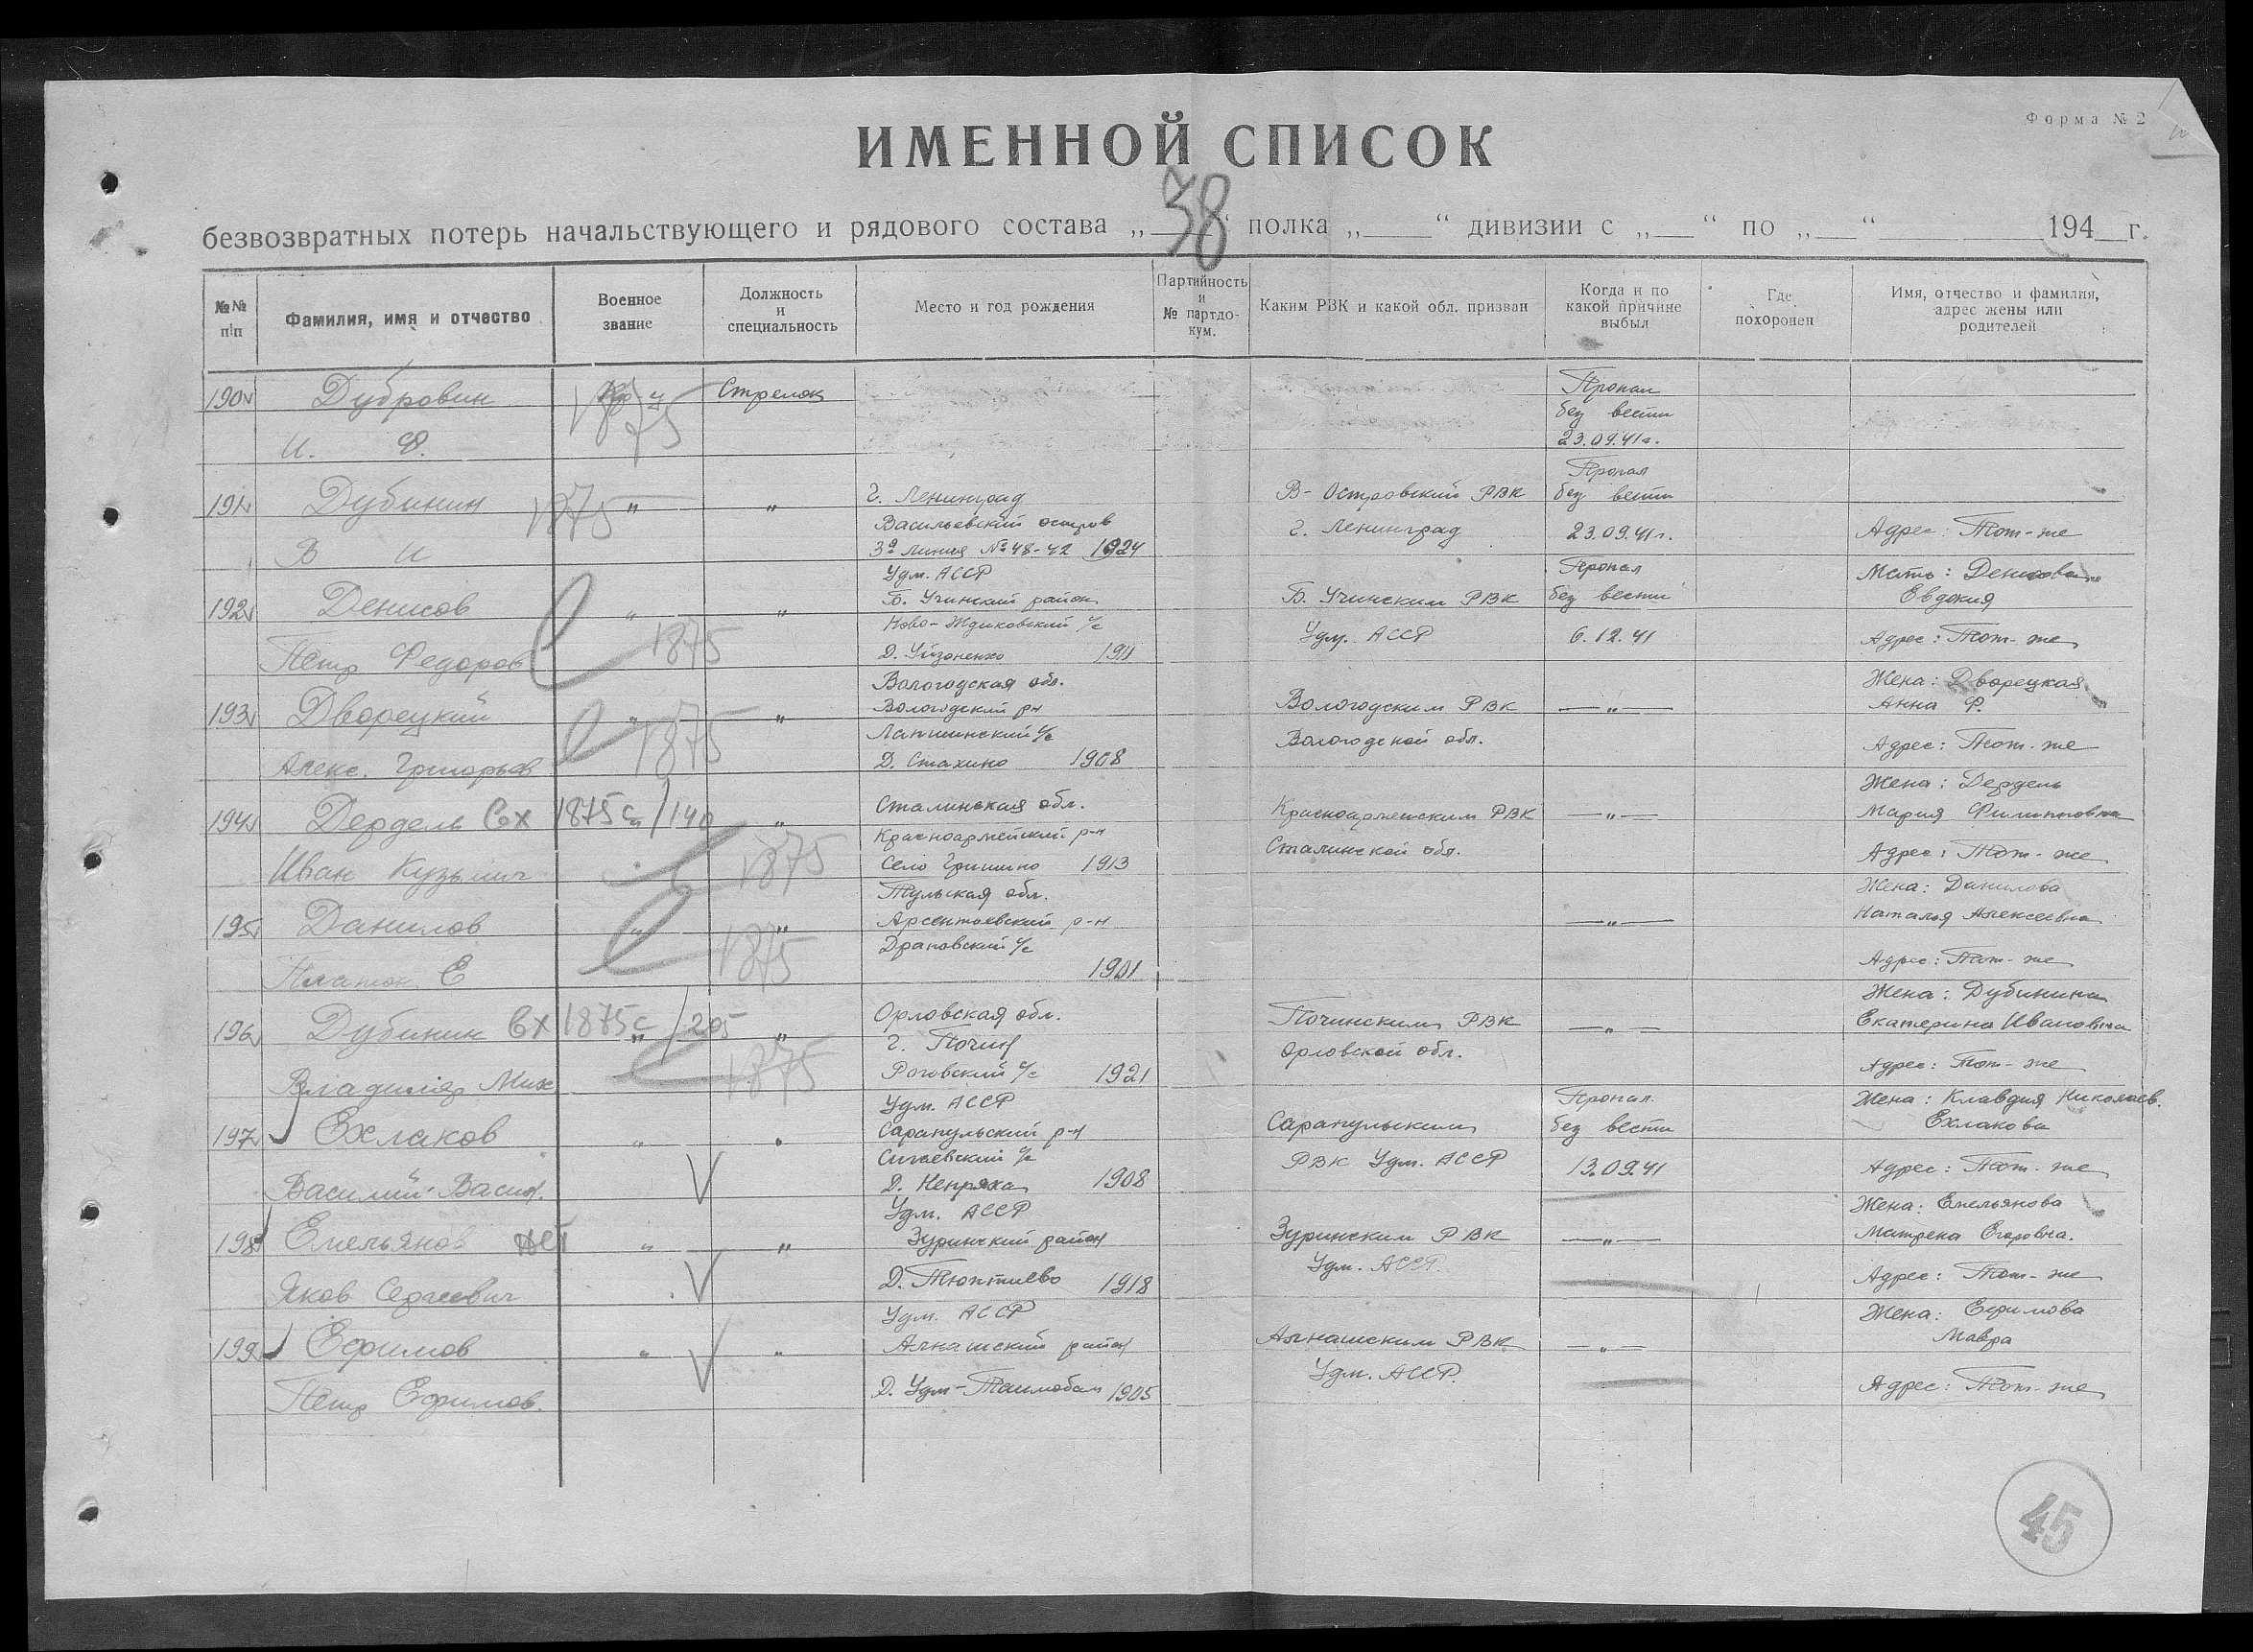 Форма № 2
ИМЕННОЙ СПИСОК
38
безвозвратных потерь начальствующего и рядового состава „ “ полка „ “ дивизии с „ “ по „ “ 194 г.
№№ п\п
Фамилия, имя и отчество
Военное звание
Должность и специальность
Место и год рождения
Партийность и № партдокум.
Каким РВК и какой обл. призван
Когда и по какой причине выбыл
Где похоронен
Имя, отчество и фамилия, адрес жены или родителей
190 Дубровин Стрелок Пропал
без вести
И. Ф. 1875 23.09.41г.
Пропал
191 Дубинин 1875 " " г. Ленинград В-Островский РВК без вести
Васильевский остров г. Ленинград 23.09.41г. Адрес: Тот-же
В И 3я линия № 48-42 1924
Удм. АССР Пропал Мать: Денисова
192 Денисов " " Б. Учинский район Б. Учинским РВК без вести Евдокия
Ново- с/с Удм. АССР 6.12.41 Адрес: Тот-же
Петр Федоров 1875 Д. 1911
Вологодская обл. Жена: Дворецкая
193 Дворецкий " " Вологодский р-н Вологодским РВК — " — Анна Ф.
1875 с/с Вологодской обл. Адрес: Тот-же
Алекс. Григорьев Д. Стахино 1908
Жена: Дердель
194 Дердель Вх 1875с/140 " Сталинская обл. Красноармейским РВК — " — Мария Филипповна
Красноармейский р-н Сталинской обл. Адрес: Тот-же
Иван Кузьмич 1875 Село Гришино 1913
Тульская обл. Жена: Данилова
195 Данилов " " Арсентьевский р-н — " — Наталья Алексеевна
Драковский с/с Адрес: Тот-же
Платон Е 1875 1901
Жена: Дубинина
196 Дубинин Вх 1875с/205 " " Орловская обл. Починским РВК — " — Екатерина Ивановна
г. Почин Орловской обл. Адрес: Тот-же
Владимир Мих 1875 Роговский с/с 1921
Удм. АССР Пропал Жена: Клавдия Николаев.
197 Ехлаков " " Сарапульский р-н Сарапульским без вести Ехлакова
Сигаевский с/с РВК Удм. АССР 13.09.41 Адрес: Тот-же
Василий Васил. Д. Непряха 1908
Удм. АССР Жена: Емельянова
198 Емельянов нет " " Зуринский район Зуринским РВК — " — Матрена Егоровна.
Удм. АССР Адрес: Тот-же
Яков Д. 1918
Удм. АССР Жена: Ефимова
199 Ефимов " " Алнашский район Алнашским РВК — " — Мавра
Удм. АССР. Адрес: Тот-же
Петр Ефимов. Д. Удм- 1905
45